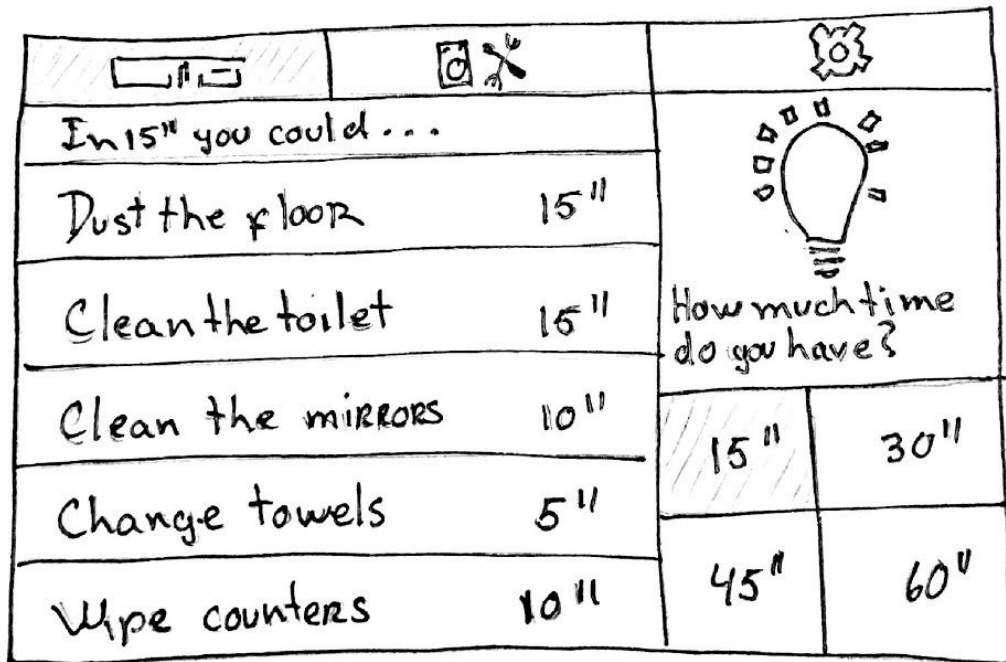 In 15" you could...
Dust the floor 15"
Clean the toilet 15"
Clean the mirrors 10"
Change towels 5"
Wipe counters 10"
How much time
do you have?
15" 30"
45" 60"